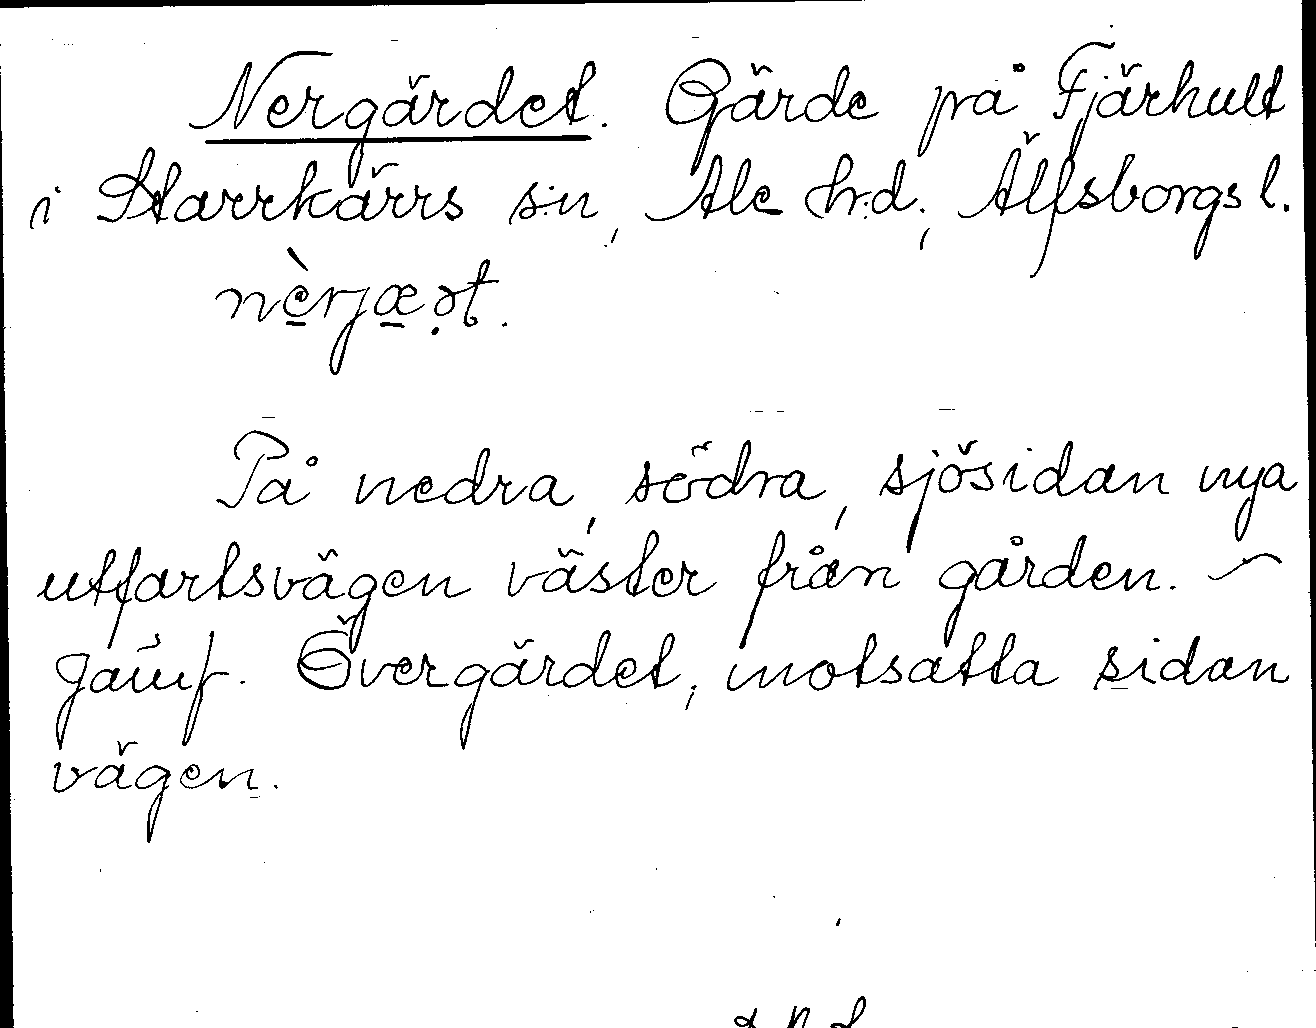 Nergärdet. Gärde på Fjärhult
i Starrkärrs s:n, Ale h:d, Älfsborgs l.
nè̱rjæ̱ət.
På nedra, södra, sjösidan nya
utfartsvägen väster från gården. –
jämf. Övergärdet, motsatta sidan
vägen.